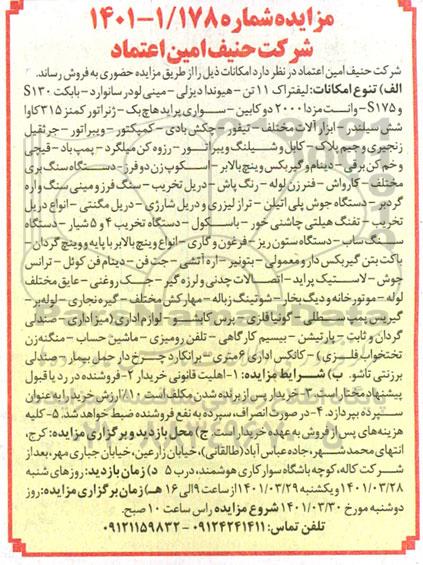 مزایده شماره ۱/۱۷۸-۱۴۰۱
شرکت حنیف امین اعتماد
شرکت حنیف امین اعتماد در نظر دارد امکانات ذیل را از طریق مزایده حضوری به فروش رساند.
الف) تنوع امکانات: لیفتراک ۱۱ تن - هیوندا دیزلی - مینی لودر سانوارد - بابکت S۱۳۰
و S۱۷۵ - وانت مزدا ۲۰۰۰ دو کابین - سواری پراید هاچ بک - ژنراتور کمنز ۳۱۵ کاوا
شش سیلندر - ابزار آلات مختلف - تیفور - چکش بادی - کمپکتور - ویبراتور - جرثقیل
زنجیری و جیم پلاک - کابل و شیلنگ ویبراتور - رزوه کن میلگرد - پمپ باد - قیچی
و خم کن برقی - دینام و گیربکس وینچ بالابر - اسکوپ زن دو فرز - دستگاه سنگ بری
مختلف - کارواش - فنر زن لوله - رنگ پاش - دریل تخریب - سنگ فرز و مینی سنگ و اره
گردبر - دستگاه جوش پلی اتیلن - تراز لیزری و دریل شارژی - دریل مگنتی - انواع دریل
تخریب - تفنگ هیلتی چاشنی خور - باسکول - دستگاه تخریب ۴ و ۵ شیار - دستگاه
سنگ ساب - دستگاه ستون ریز - فرغون و گاری - انواع وینچ بالابر با پایه و وینچ گردان -
باکت بتن گیربکس دار و معمولی - بتونیر - اره آتشی - جت فن - دینام فن کوئل - ترانس
جوش - لاستیک پراید - اتصالات چدنی و لرزه گیر - جک روغنی - عایق مختلف
لوله - موتور خانه و دیگ بخار - شوتینگ زباله - مهارکش مختلف - گیره نجاری - لوله بر
گیربس پمپ سطلی - گونیا فلزی - پرس کابلشو - لوازم اداری (میز اداری - صندلی
گردان و ثابت - پارتیشن - بیسیم کارگاهی - تلفن رومیزی - ماشین حساب - منگنه زن
تختخواب فلزی) - کانکس اداری ۶ متری - برانکارد چرخ دار حمل بیمار - صندلی
برزنتی تاشو. ب) شرایط مزایده: ۱- اهلیت قانونی خریدار ۲- فروشنده در رد یا قبول
پیشنهاد مختار است ۳- خریدار پس از برنده شدن مکلف است ۱۰٪ ارزش خرید را به عنوان
سپرده بپردازد. ۴- در صورت انصراف، سپرده به نفع فروشنده ضبط خواهد شد. ۵- کلیه
هزینه های پس از فروش به عهده خریدار است. ج) محل بازدید و برگزاری مزایده: کرج،
انتهای محمدشهر، جاده عباس آباد (طالقانی)، خیابان زارعین، خیابان جباری مهر، بعد از
شرکت کاله، کوچه باشگاه سوارکاری هوشمند، درب ۵ د) زمان بازدید: روزهای شنبه
۱۴۰۱/۰۳/۲۸ و یکشنبه ۱۴۰۱/۰۳/۲۹ از ساعت ۹ الی ۱۶ هـ) زمان برگزاری مزایده: روز
دوشنبه مورخ ۱۴۰۱/۰۳/۳۰ شروع مزایده راس ساعت ۱۰ صبح.
تلفن تماس: ۰۹۱۲۴۲۴۱۴۱۱ - ۰۹۱۲۱۱۵۹۸۳۲